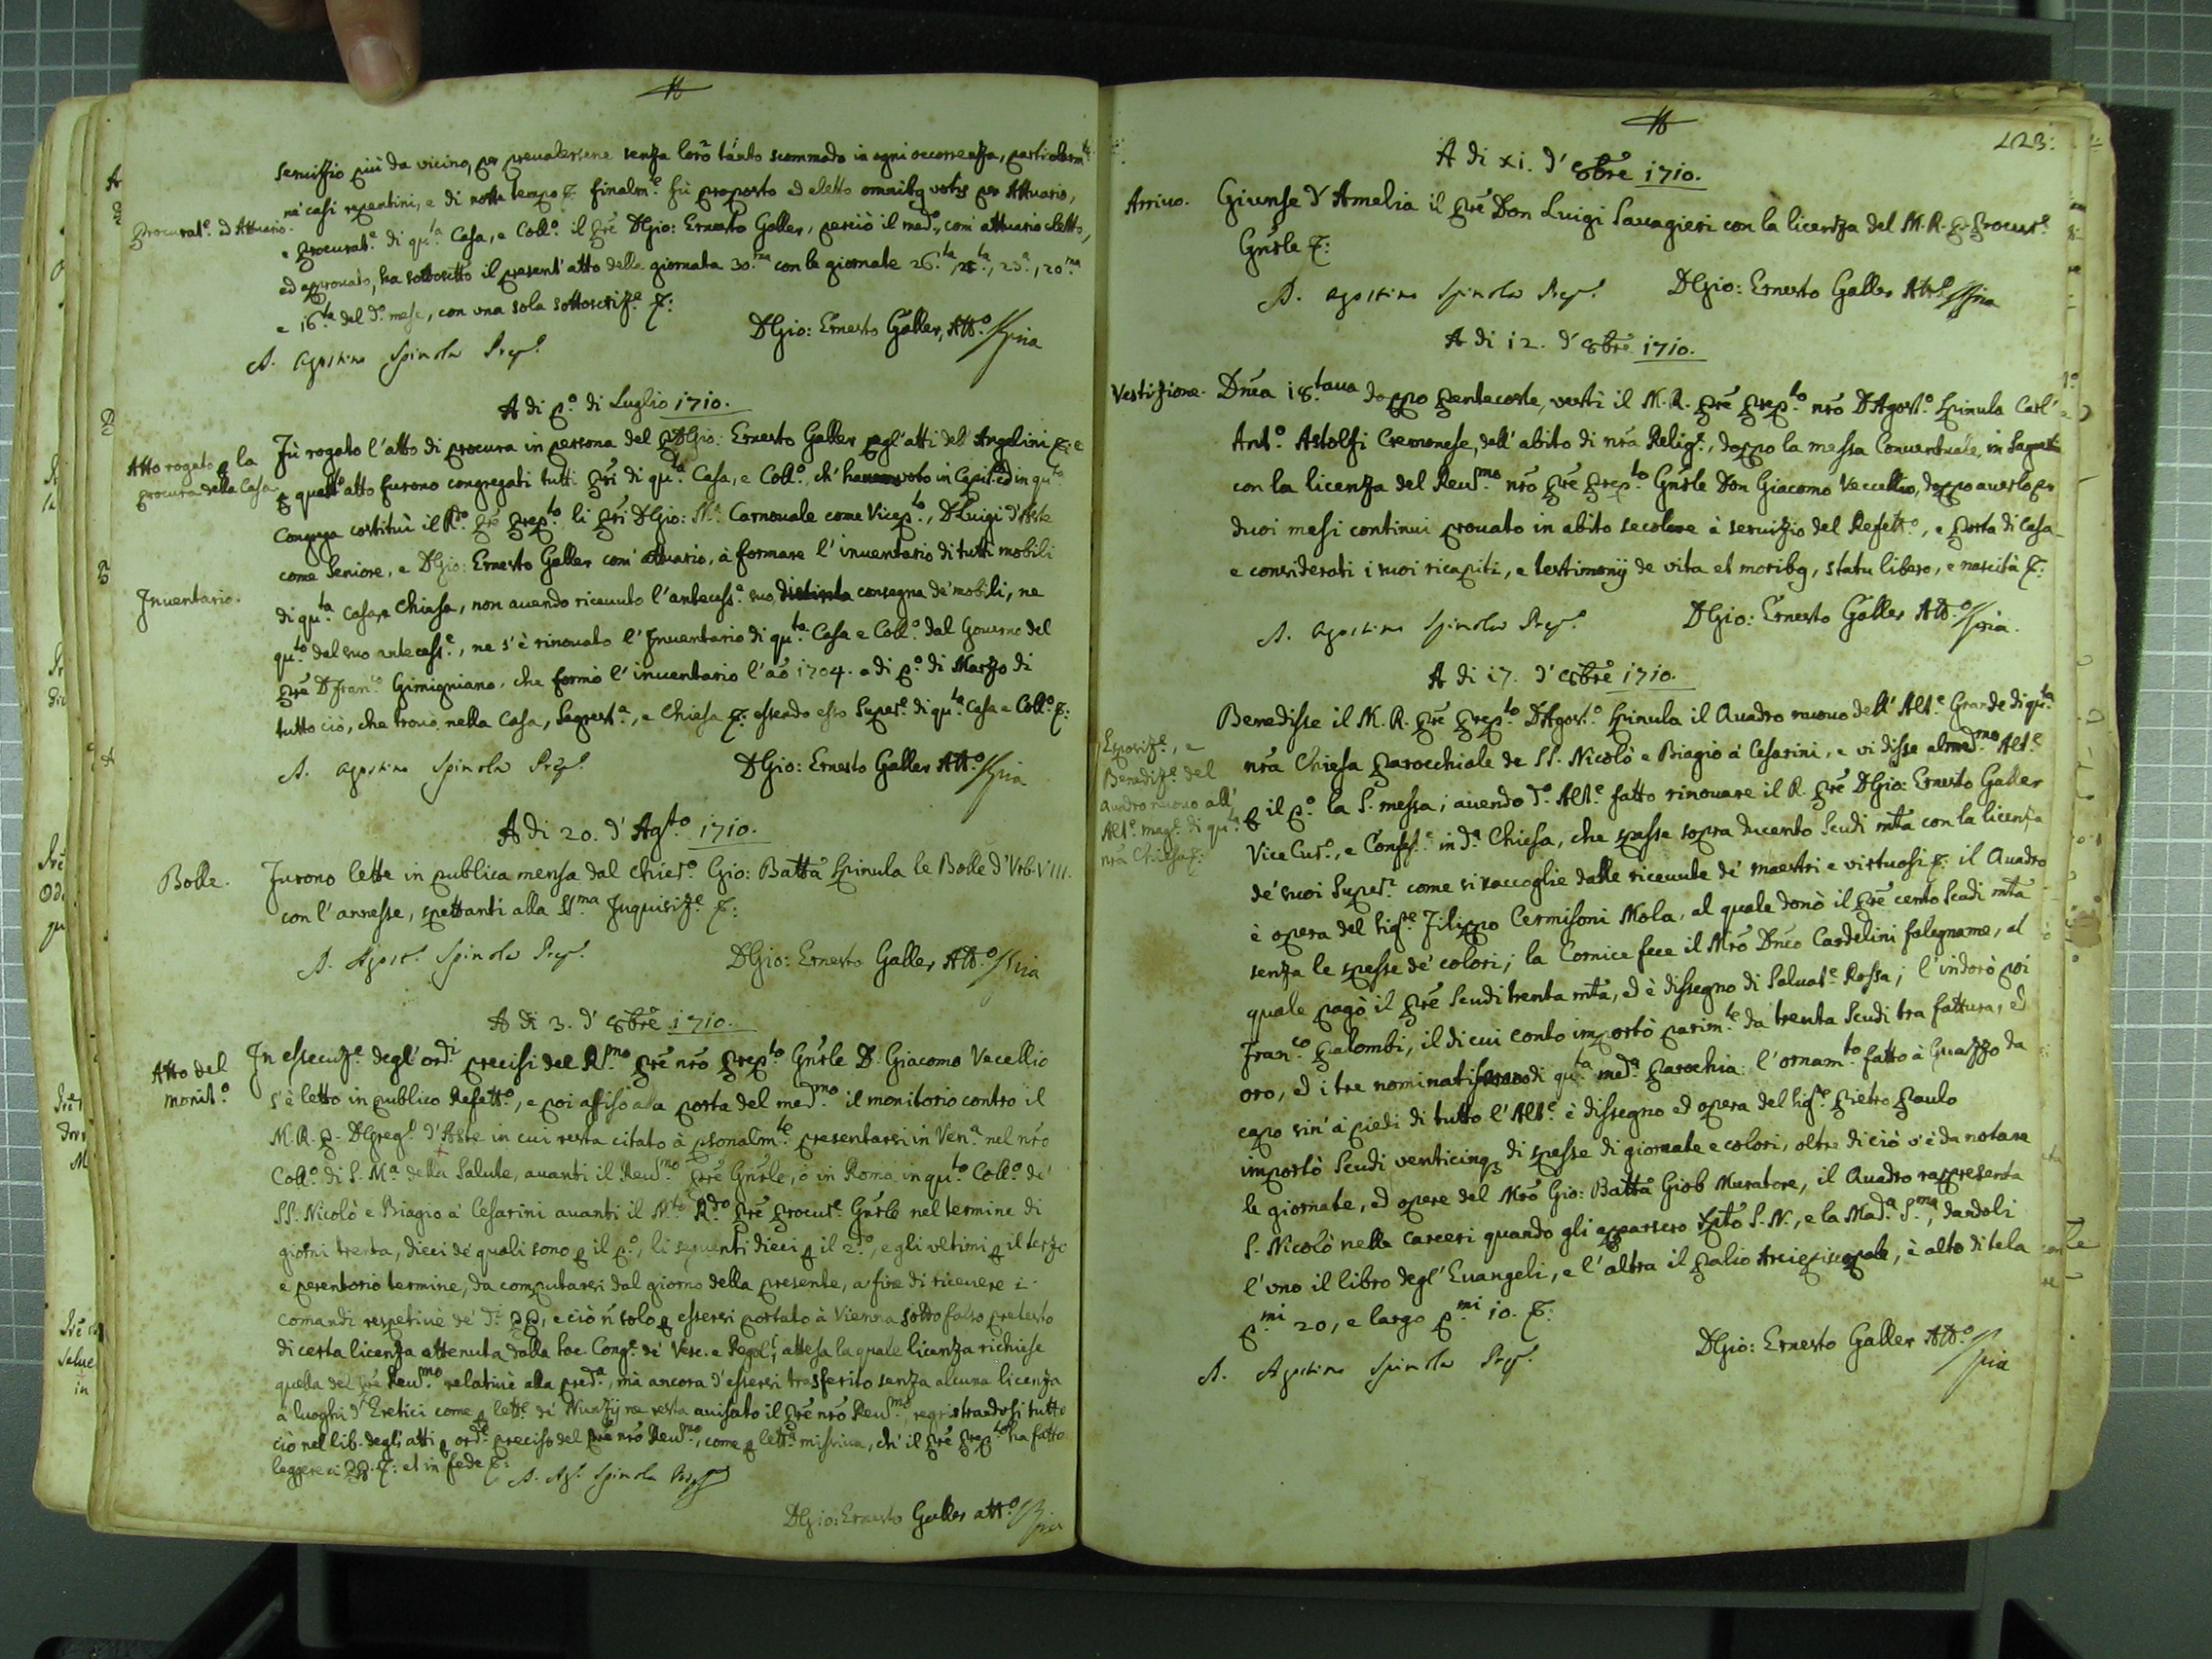 seruizio più da vicino, per preualersene senza loro tanto scommodo in ogni occorrenza, particolarm.te
ne' casi repentini, e di notte tempo &: finalm.e fù proposto ed eletto omnibq votis per Attuario,
Procurat.e ed Attuario.
e Procurat.e di qu.ta Casa, e Coll.o il Prē D Gio: Ernesto Galler, perciò il med.o, com' attuario eletto,
ed approuato, ha sottoscritto il present' atto della giornata 30.ma con le giornate 26.ta, 23.a, 20.ma
e 16.ta del d.o mese, con vna sola sottoscriz.e &:
D. Agostino Spinola Prep.o
D Gio: Ernesto Galler, Att.o
A di p.o di Luglio 1710.
Atto rogato p la
procura della Casa
Fù rogato l'atto di procura in persona del P D Gio: Ernesto Galler pegl'atti dell' Angelini &: e
p quest'atto furono congregati tutti Pri di qu.ta Casa, e Coll.o, ch' hanno voto in Capit.o ed in qu.ta
Congrega costituì il R.do Prē Prep.to li Pri D Gio: M.a Carnouale come Vicep.to, D Luigi d'Aste
come Seniore, e D Gio: Ernesto Galler com' attuario, à formare l'inuentario di tutti mobili
Inuentario.
di qu.ta Casa, e Chiesa, non auendo riceuuto l'antecess.e suo distinta consegna de' mobili, ne
qu.to dal suo antecess.e, ne s'è rinouato l'Inuentario di qu.ta Casa e Coll.o dal Gouerno del
Prē D Fran.co Gimigniano, che formò l'inuentario l'āo 1704. a di p.o di Marzo di
tutto ciò, che trouò nella Casa, Sagrest.a, e Chiesa &: essendo esso Super.e di qu.ta Casa e Coll.o &:
D. Agostino Spinola Prep.o
D Gio: Ernesto Galler Att.o
A di 20. d' Ag.sto 1710.
Bolle.
Furono lette in publica mensa dal chier.o Gio: Battā Spinula le Bolle d'Vrb. VIII.
con l'annesse, spettanti alla SS.ma Inquisiz.e &:
D. Agost.o Spinola Prep.o
D Gio: Ernesto Galler Att.o
A di 3. d' 8brē 1710.
Atto del
monit.o
In essecuz.e degl' ord.i precisi del R.mo Prē nrō Prep.to Gnrle D. Giacomo Vecellio
s'è letto in publico Refett.o, e poi affiso alla porta del med.mo il monitorio contro il
M. R. P. D Greg.o d'Aste in cui resta citato à psonalm.te presentarsi in Ven.a nel nrō
Coll.o di S. M.a della Salute, auanti il Reu.mo Prē Gnrle, ò in Roma in qu.to Coll.o de'
SS. Nicolò e Biagio a' Cesarini auanti il M.to R.do Prē Procur.e Gnrle nel termine di
giorni trenta, dieci de' quali sono p il p.o, li sequenti dieci p il 2.do, e gli vltimi p il terzo
e perentorio termine, da computarsi dal giorno della presente, a fine di riceuere i
comandi respetiuè de' d.i PP, e ciò ñ solo p essersi portato à Vienna sotto falso pretesto
di certa licenza attenuta dalla Sac. Cong.e de' Vesc. e Regol.i, attesa la quale licenza richiese
quella del Prē Reu.mo relatiuè alla pred.a, mà ancora d'essersi trasferito senza alcuna licenza
a luoghi d'Eretici come p lett.e de' Nunzij ne resta auisato il Prē nrō Reu.mo, registrandosi tutto
ciò nel lib. degl'atti p ord.e preciso del Prē nrō Reu.mo, come p lett.a missiua, ch' il Prē Prep.to ha fatto
leggere a PP. &: et in fede &:
D. Ag.o Spinola Prep.o
D Gio: Ernesto Galler att.o
123.
A di xi. d' 8brē 1710.
Arriuo.
Giunse d' Amelia il Prē Don Luigi Sauagieri con la licenza del M. R. P. Procur.e
Gnrle &:
D. Agostino Spinola Prep.o
D Gio: Ernesto Galler Att.o
A di 12. d' 8brē 1710.
Vestizione.
Dnica 18.taua doppo Pentecoste, vestì il M. R. Prē Prep.to nrō D Agost.o Spinula Carl'
Ant.o Astolfi Cremonese, dell' abito di nrā Relig.e, doppo la messa Conuentuale, in Sagrestia
con la licenza del Reu.mo nrō Prē Prep.to Gnrle Don Giacomo Veccellio, doppo auerlo per
duoi mesi continui prouato in abito secolare à seruizio del Refett.o, e Porta di Casa
e considerati i suoi ricapiti, e testimonij de vita et moribq, statu libero, e nascità &:
D. Agostino Spinola Prep.o
D Gio: Ernesto Galler Att.o
A di 17. d' 8brē 1710.
Esposiz.e, e
Benediz.e del
Quadro nuouo all'
Alt.e mag.e di qu.ta
nrā Chiesa &:
Benedisse il M. R. Prē Prep.to D Agost.o Spinula il Quadro nuouo dell' Alt.e Grande di qu.ta
nrā Chiesa Parocchiale de SS. Nicolò e Biagio a' Cesarini, e vi disse al med.mo Alt.e
p il p.o la S. messa; auendo d.o Alt.e fatto rinouare il R. Prē D Gio: Ernesto Galler
Vice Cur.o, e Confess.e in d.a Chiesa, che spesse sopra ducento Scudi mta con la licenza
de' suoi Super.i come si raccoglie dalle riceuute de' maestri e virtuosi &: il Quadro
è opera del Sig.re Filippo Cermisoni Mola, al quale donò il Prē cento Scudi mta
senza le spesse de' colori; la Cornice fece il Mrō Dnico Cardelini falegname, al
quale pagò il Prē Scudi trenta mta, ed è dissegno di Saluat.e Rossa; l'indorò poi
Fran.co Palombi, il di cui conto importò parim.te da trenta Scudi tra fattura, ed
oro, ed i tre nominati sono di qu.ta med.a Parochia: l'ornam.to fatto à Guazzo da
capo sin' a' piedi di tutto l'Alt.e è dissegno ed opera del Sig.re Pietro Paulo
importò Scudi venticinq3 di spesse di giornate e colori, oltre di ciò s'è da notare
le giornate, ed opere del Mrō Gio: Battā Giob Muratore, il Quadro rappresenta
S. Nicolò nelle carceri quando gli apparsero Xpto S. N., e la Mad.a S.ma, dandoli
l'vno il libro degl' Euangeli, e l'altra il Palio Arciepiscopale, è alto di tela
p.mi 20, e largo p.mi 10. &:
D. Agostino Spinola Prep.o
D Gio: Ernesto Galler Att.o